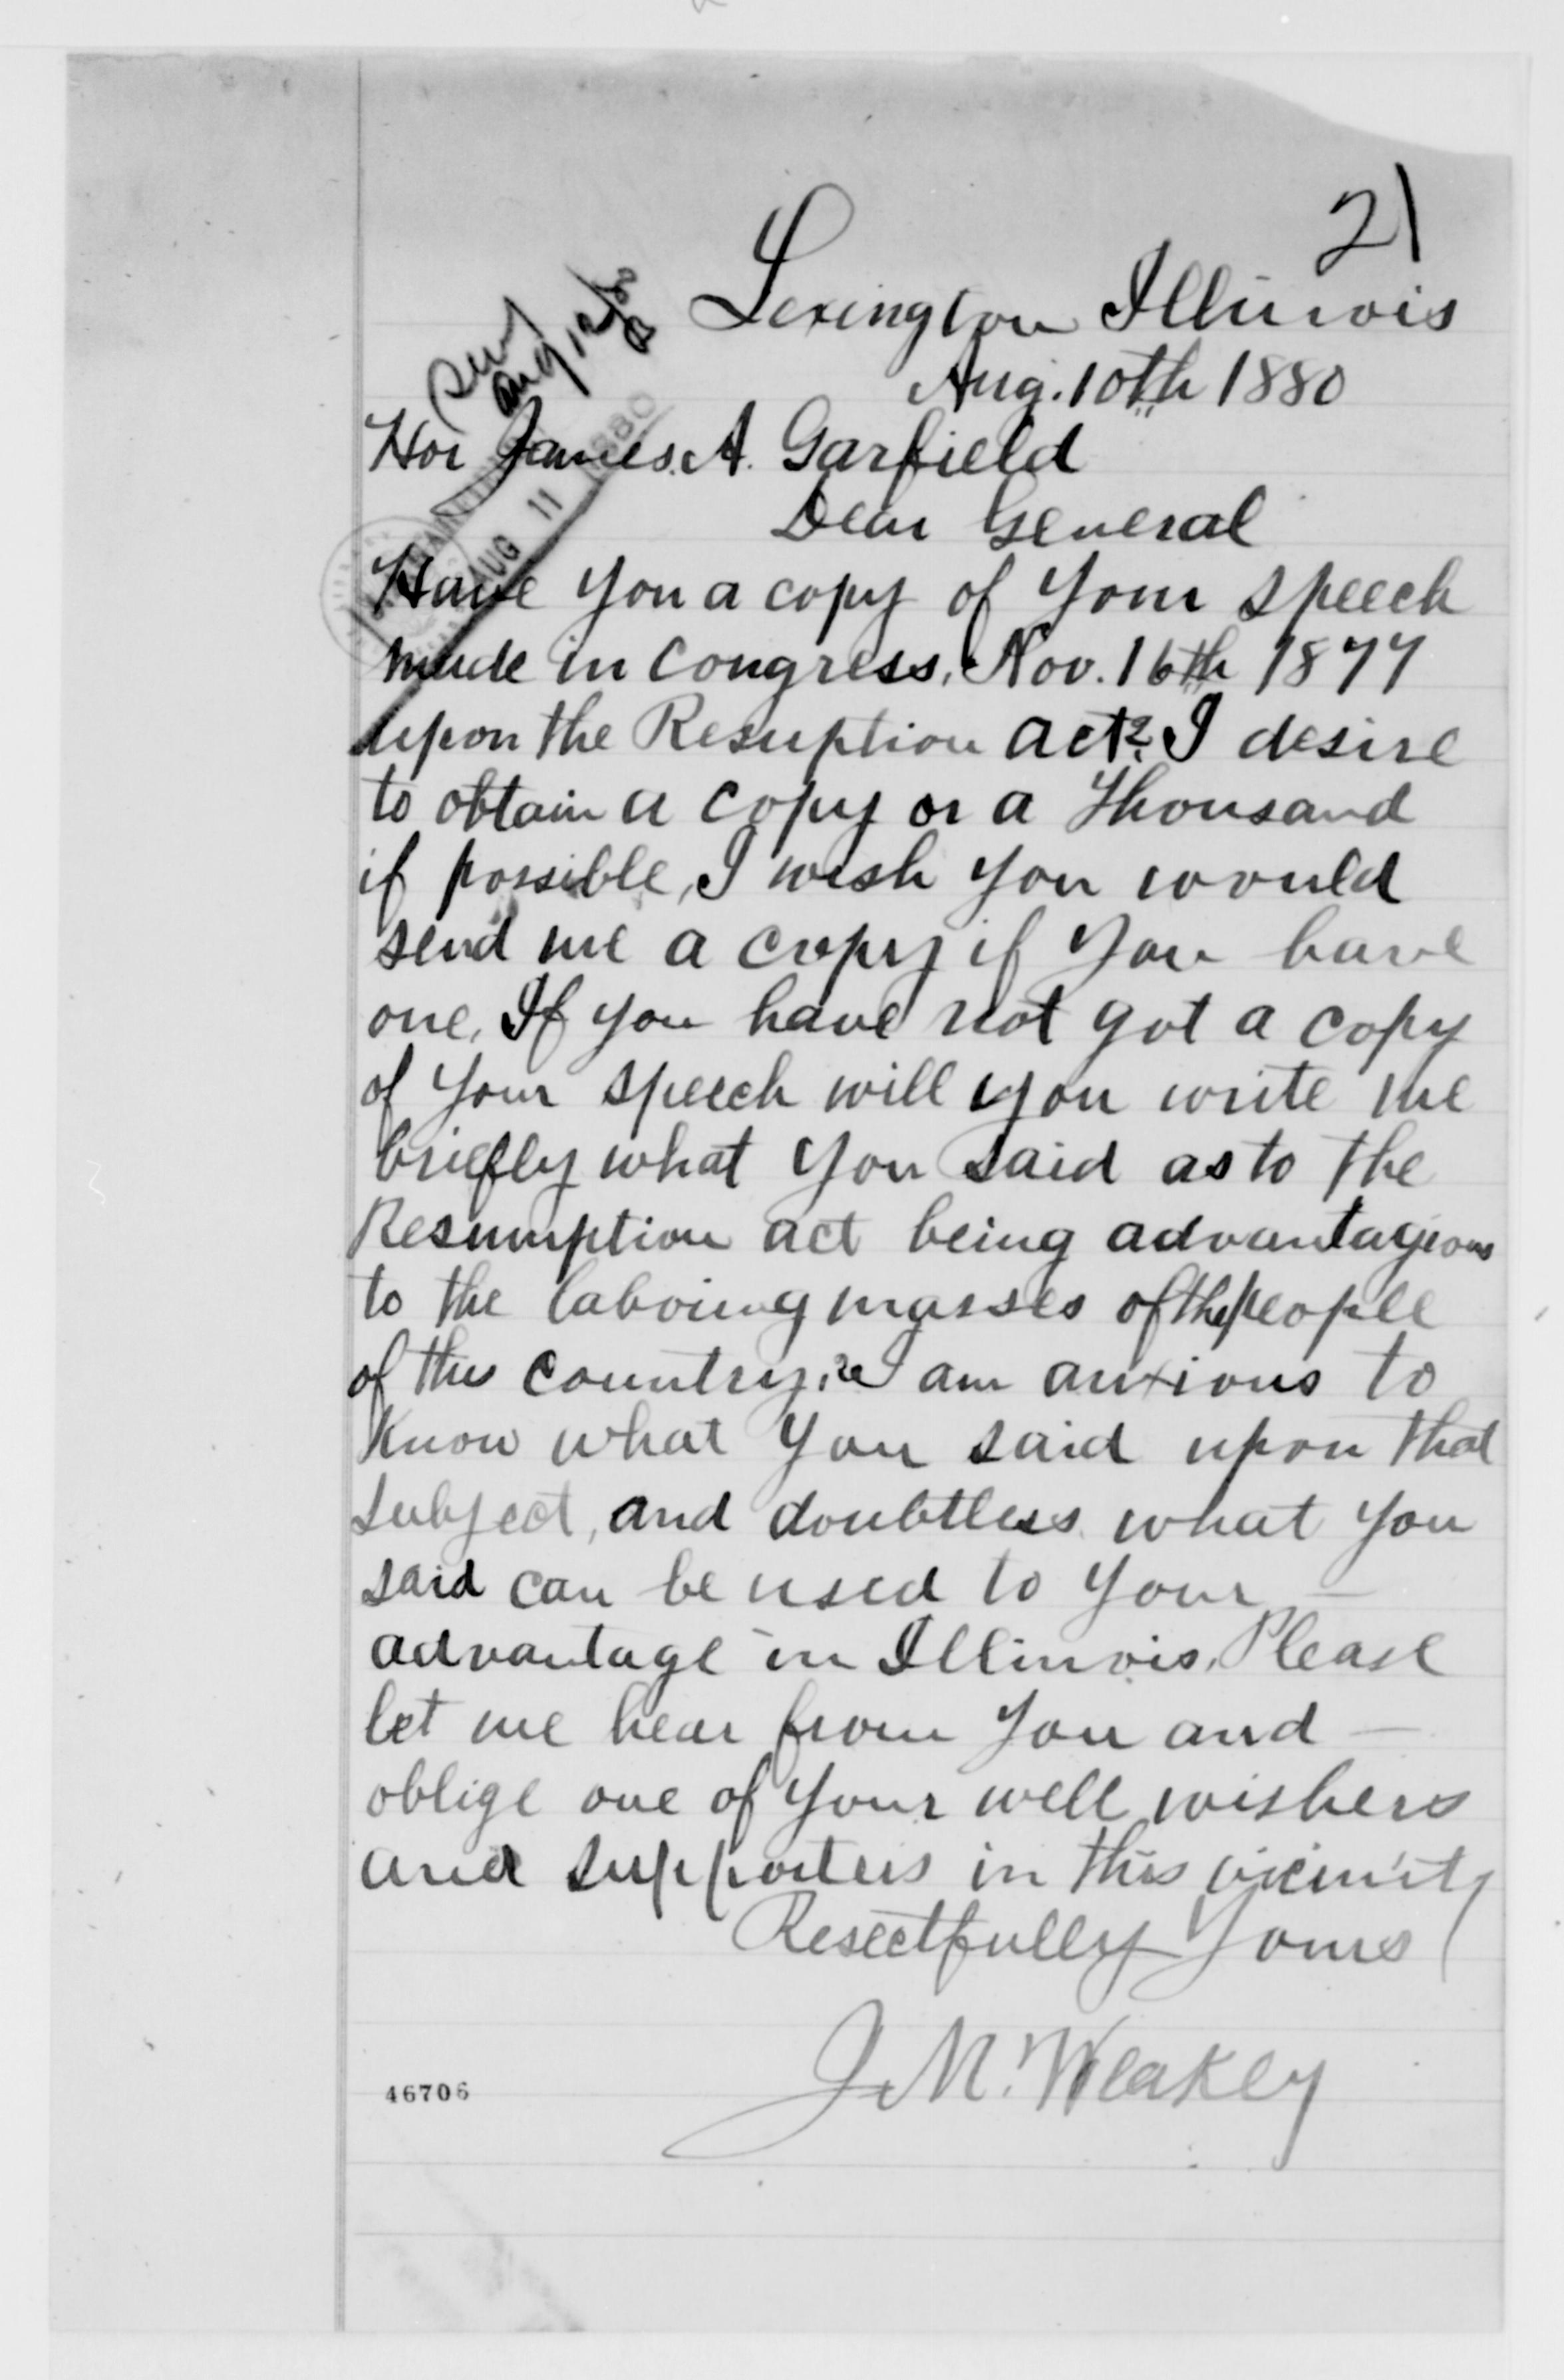 21
Lexington Illinois
Aug. 10th 1880
Hon James. A. Garfield
Dear General
Have you a copy of your speech
made in Congress. Nov. 16th 1877
upon the Resuption act? I desire
to obtain a copy or a thousand
if possible, I wish you would
send me a copy if you have
one. If you have not got a copy
of your speech will you write me
briefly what you said as to the
Resumption act being advantageous
to the laboing masses of the people
of this country? I am anxious to
know what you said upon that
subject, and doubtless what you
said can be used to your —
advantage in Illinois. Please
let me hear from you and —
oblige one of your well wishers
and supporters in this vicinity
Resectfully Yours
J. M. Weakley
46706
Aug 12/80
AUG 11 1880